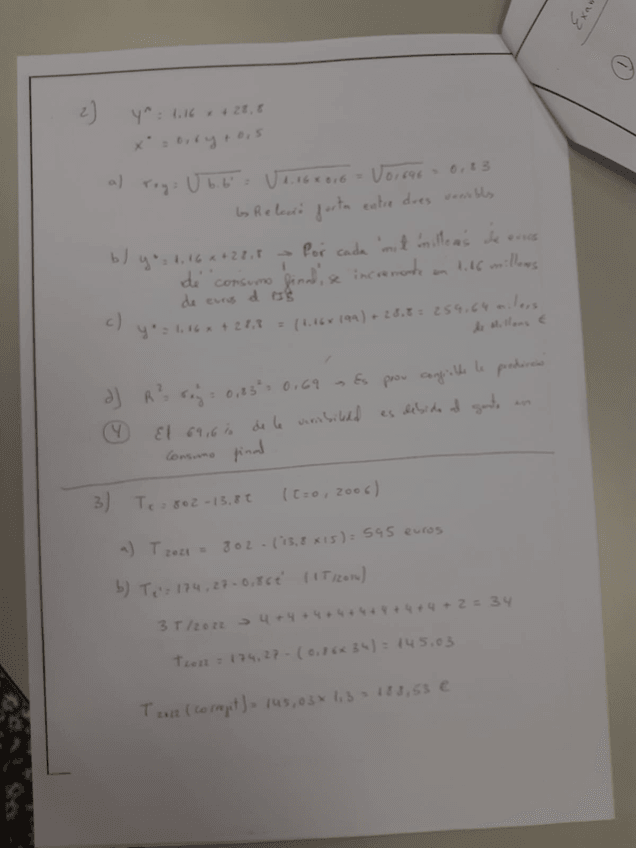 Exa
1
2) y* = 1.16 x + 28,8
x* = 0,6 y + 0,5
a) rxy = √b.b' = √1.16 x 0,6 = √0,696 = 0,83
↳ Relació forta entre dues variables
b) y* = 1,16 x + 28,8 → Por cada mil millones de euros
de consumo final, se incrementa en 1.16 millones
de euros el PIB
c) y* = 1,16 x + 28,8 = (1,16 x 199) + 28,8 = 259,64 milers
de millons €
d) R² = r²xy = 0,83² = 0,69 → Es prou la
④ El 69,6% de la variabilidad es debida al gasto en
consumo final
3) Tt = 802 - 13,8 t (t=0, 2006)
a) T2021 = 802 - (13,8 x 15) = 595 euros
b) Tt' = 174,27 - 0,86 t'
3T/2022 → 4+4+4+4+4+4+4+4+2 = 34
T2022 = 174,27 - (0,86 x 34) = 145,03
T2022 = 145,03 x 1,3 = 188,53 €